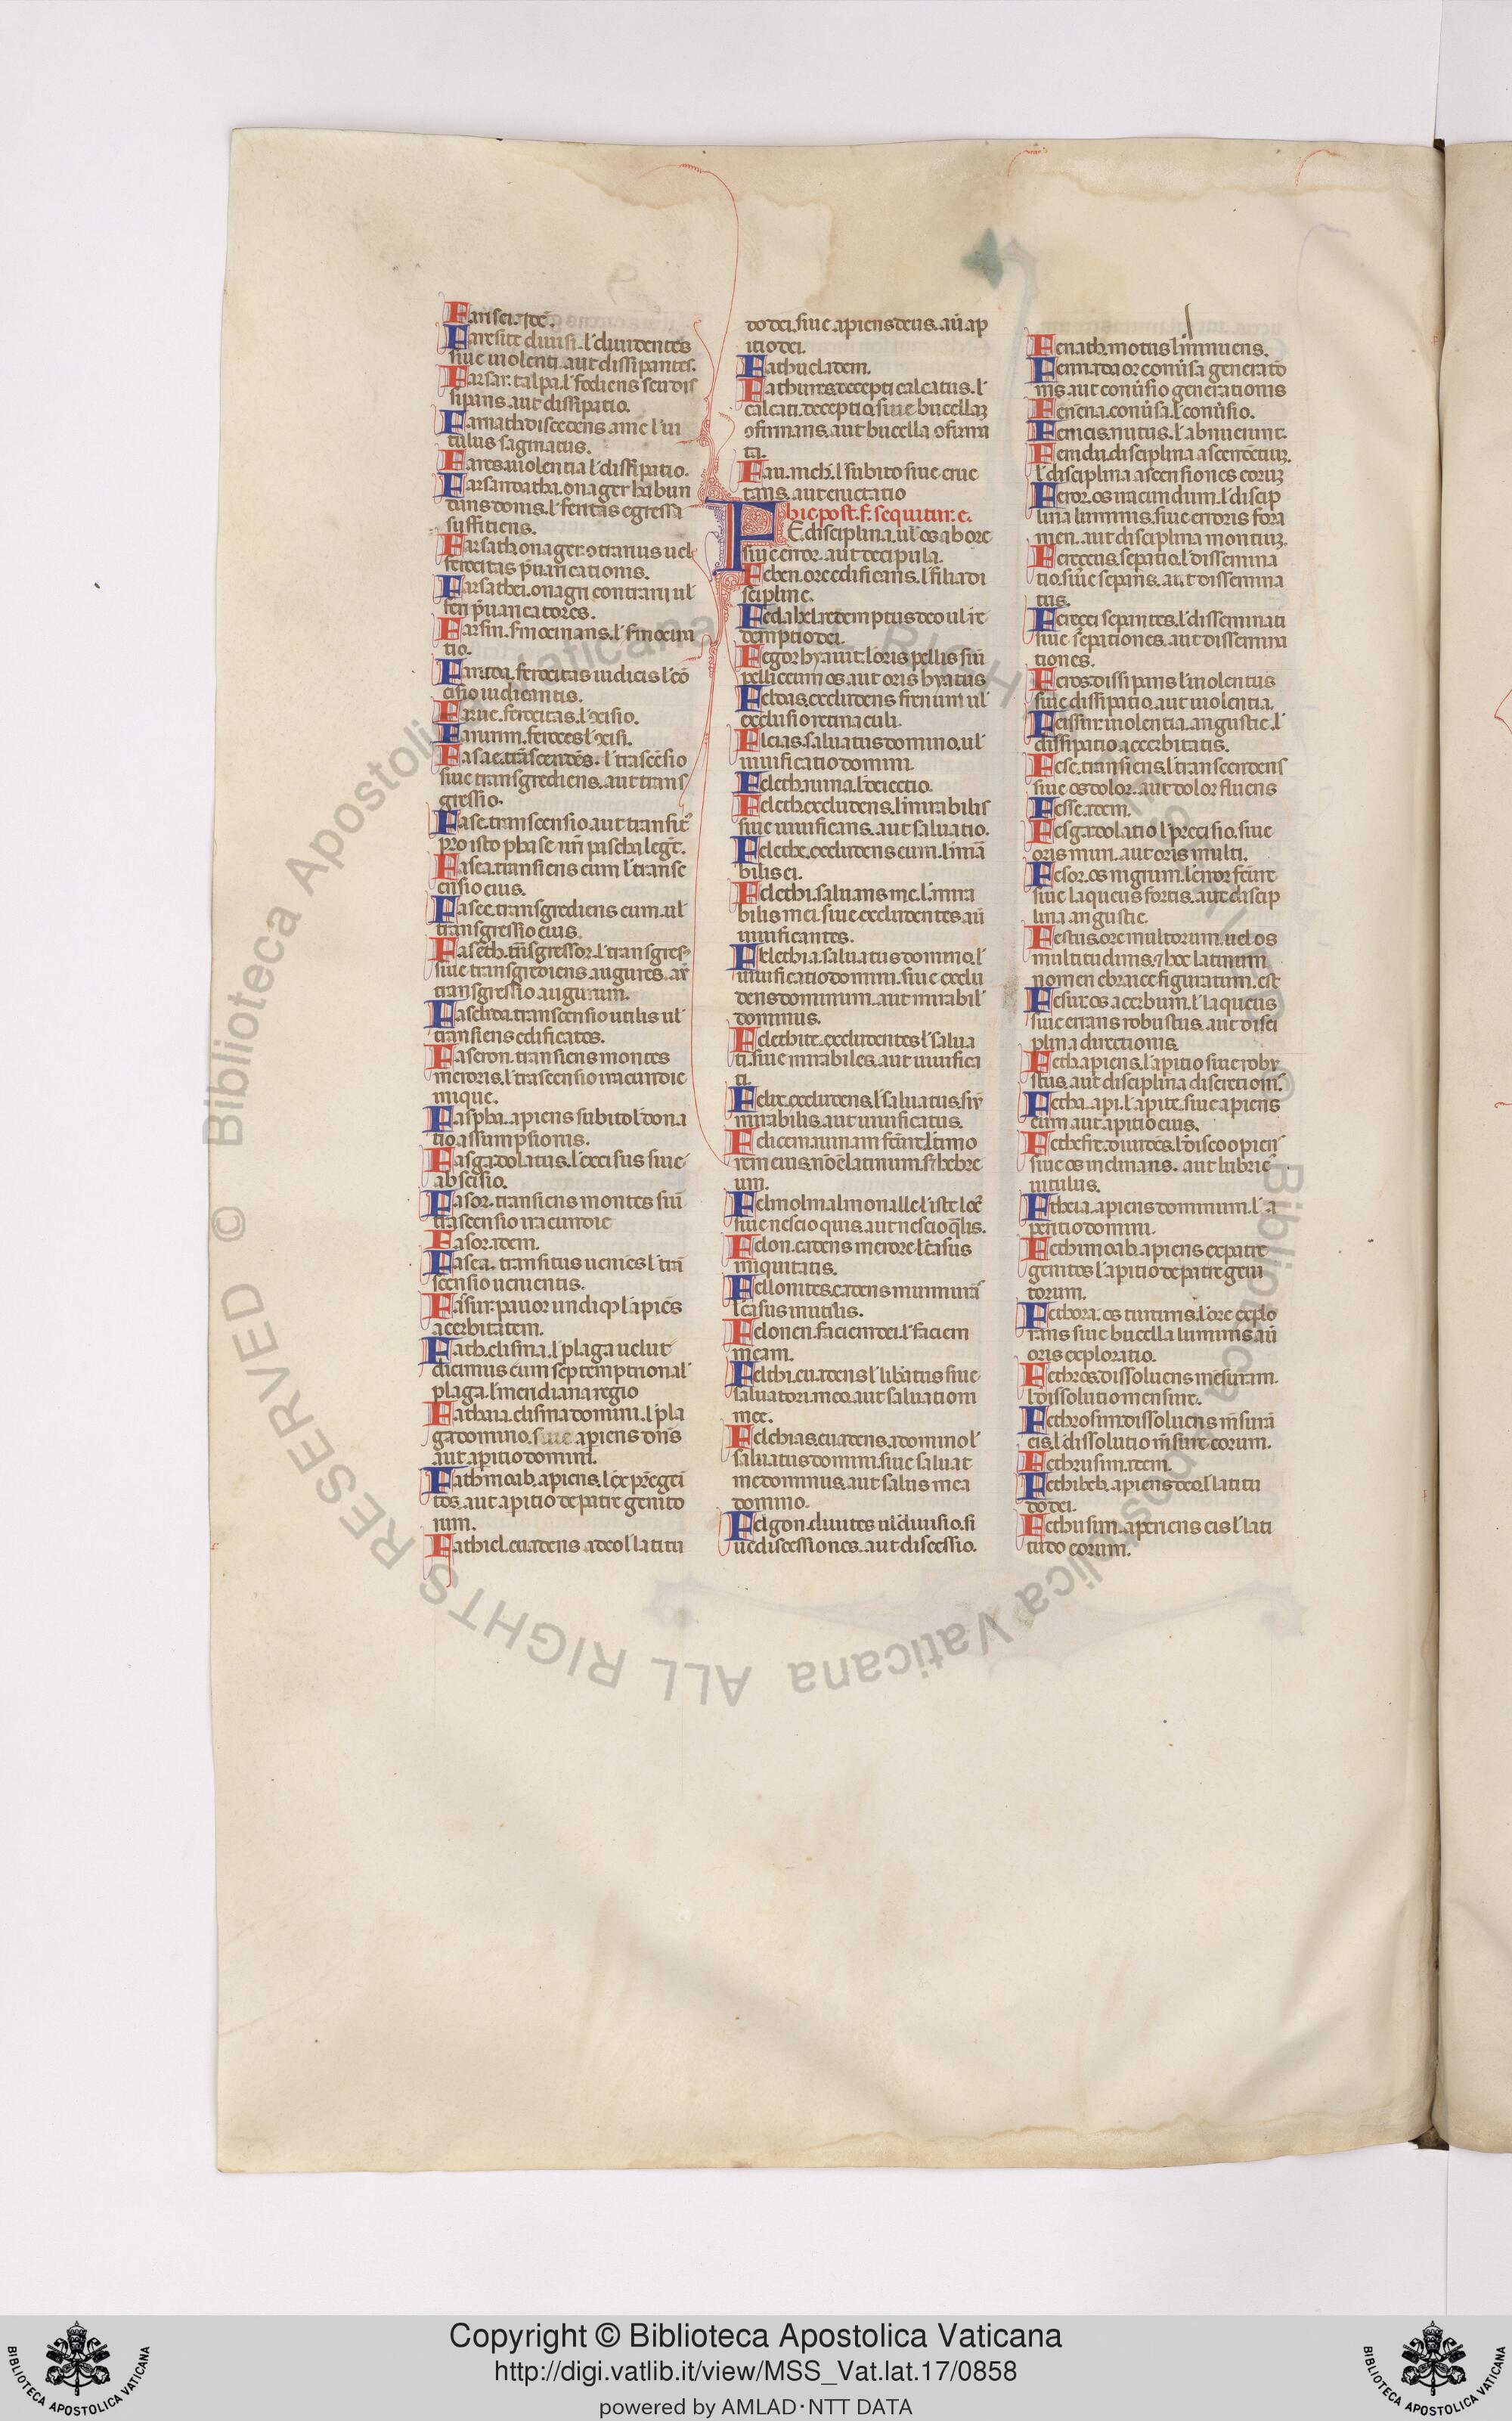 Farisei. idē.
Faresite diuisi. l̄ diuidentes
siue uiolenti. aut dissipantes.
Farsar. talpa. l̄ fodiens seu dis
sipans. aut dissipatio.
Farnach discedens a me l̄ ui
tulus saginatus.
Fares. uiolentia l̄ dissipatio.
Farsandatha. onager habun
dans donis. l̄ feritas egressa
suffitiens.
Farsath onager otranus uel
ferocitas p̄uaricationis.
Farsathei. onagri contrarii ul̄
feri p̄uaricatores.
Farsin. l̄
tio.
Faruda. ferocitas iudicis l̄
cisio iudicantis.
Farue. ferocitas. l̄ xisio.
Farurim. feroces l̄ xisi.
Fasac. trāscendēs. l̄ trascēsio
siue transgrediens. aut trans
gressio.
Fase. transcensio aut transit
pro isto phase nr̄i pascha legt̄.
Fasea. transiens eum l̄ transc
ensio eius.
Fasee. transgrediens eum. ul̄
transgressio eius.
Faseth. trn̄sgressor. l̄ transgres
siue transgrediens augures. at̄
transgressio augurum.
Faselida. transcensio utilis ul̄
transiens edificates.
Faseron. transiens montes
meroris. l̄ trascensio iracundie
inique.
Faspha. apiens subito l̄ dona
tio assumpsionis.
Fasga dolatus. l̄ excisus siue
abscisio.
Fasor. transiens montes siū
trascensio iracundie
Fasor. idem.
Fasea. transitus ueniēs l̄ trā
scensio uenientis.
Fasur. pauor undiq l̄ apiēs
acerbitatem.
Fath. clisma. l̄ plaga uelut
dicimus eum septemptrional̄
plaga. l̄ meridiana regio
Fathaia. clisma domini. l̄ pla
ga domino. siue apiens dn̄s
aut apitio domini.
Fathmoab. apiens. l̄ ex pr̄e geī
tos. aut apitio de patre genito
rum.
Fathiel. euadens a deo l̄ latitu
do dei. siue apiens deus. aū ap
itio dei.
Fathuel. idem.
Fathures. decepti calcatus. l̄
calcati. deceptio. siue bucellaꝫ
ofirmans. aut bucella ofirma
ti.
Fau. mch. l̄ subito siue eruc
tans. aut eructatio
hic post. f. sequitur. e.
FE. disciplina. ul̄ os ab ore
siue error. aut decipula.
Feben. ore edificans. l̄ filia di
scipline.
Fedabel. redemptus deo ul̄ re
demptio dei.
Fegor. hyauit. l̄ oris pellis siū
pelliceum os. aut oris hyatus
Feldas. excludens frenum ul̄
exclusio retinaculi.
Felcias. saluatus domino. ul̄
uiuificatio domini.
Feleth. ruina. l̄ deiectio.
Feleth. excludens. l̄ mirabilis
siue uiuificans. aut saluatio.
Felethe. excludens eum. l̄ mirā
bilis ei.
Felethi. saluans me. l̄ mira
bilis mei. siue excludentes. aū
uiuificantes.
Felethia. saluatus domino. l̄
uiuificatio domini. siue exclu
dens dominum. aut mirabil̄
dominus.
Felethite. excludentes l̄ salua
ti. siue mirabiles. aut uiuifica
ti.
Felix. excludens. l̄ saluatus. siū
mirabilis. aut uiuificatus.
Felicem. ruinam l̄ timo
rem eius. nōē latinum. s hebre
um.
Felmolmalmon. alle l̄ iste loc̄
siue nescio quis. aut nescio qlis.
Felon. cadens merore. l̄ casus
iniquitatis.
Fellonites. cadens murmurās
l̄ casus inutilis.
Felonen. faciem dei. l̄ faciem
meam.
Felthi. euadens l̄ lib̄atus siue
saluatori meo. aut saluationi
mee.
Felchias. euadens. a domino l̄
saluatus domini. siue saluat
me dominus. aut salus mea
domino.
Felgon. diuites ul̄ diuisio. si
ue discessiones. aut discessio.
Fenath. motus l̄ innuens.
Fennada or conūsa generatō
nis. aut conūsio generationis
Fenena. conūsa. l̄ conūsio.
Fenicis. nutus. l̄ abnuerunt.
Fenidu. disciplina ascendentiuꝫ.
l̄ disciplina ascensiones eoruꝫ
Feror. os iracundum. l̄ discip
lina luminis. siue erroris fora
men. aut disciplina montiuꝫ.
Ferecus. sepatio. l̄ dissemina
tio. siue sepans. aut dissemina
tus.
Ferecei sepantes. l̄ disseminati
siue sepationes. aut dissemina
tiones.
Feros. dissipans l̄ uiolentus
siue dissipatio. aut uiolentia.
Fersur. uiolentia. angustie. l̄
dissipatio acerbitatis.
Fese. transiens. l̄ transcendens
siue os dolor. aut dolor fluens
Fesse. idem.
Fesga. dolatio l̄ precisio. siue
oris muri. aut oris multi.
Fesor. os nigrum. l̄ error
siue laqueus fortis. aut discip
lina angustie.
Festus. ore multorum. uel os
multitudinis. & hoc latinum
nomen ebraice figuratum. est
Fesur. os acerbum. l̄ laqueus
siue errans robustus. aut disci
plina directionis.
Feth. apiens. l̄ apitio siue robu
stus. aut disciplina discretioni.
Fetha. api. l̄ apite. siue apiens
eum aut apitio eius.
Fethefre. diuidēs. l̄ discoopien̄
siue os inclinans. aut lubric̄
uitulus.
Fetheia. apiens dominum. l̄ a
peritio domini.
Fethimoab. apiens ex patre
genitos l̄ apitio de patre geni
torum.
Fethora. os turturis. l̄ ore explo
rans siue bucella luminis. aū
oris exploratio.
Fethros. dissoluens mēsuram.
l̄ dissolutio mensure.
Fethrosim. dissoluens m̄surā
eis. l̄ dissolutio m̄sure eorum.
Fethrusim. idem.
Fethiheb. apiens deo. l̄ latitu
do dei.
Fethusim. aperiens eis l̄ lati
tudo eorum.
Copyright © Biblioteca Apostolica Vaticana
http://digi.vatlib.it/view/MSS_Vat.lat.17/0858
powered by AMLAD · NTT DATA
BIBLIOTECA APOSTOLICA VATICANA
BIBLIOTECA APOSTOLICA VATICANA
© Biblioteca Apostolica Vaticana ALL RIGHTS RESERVED © Biblioteca Apostolica Vaticana ALL RIGHTS RESERVED